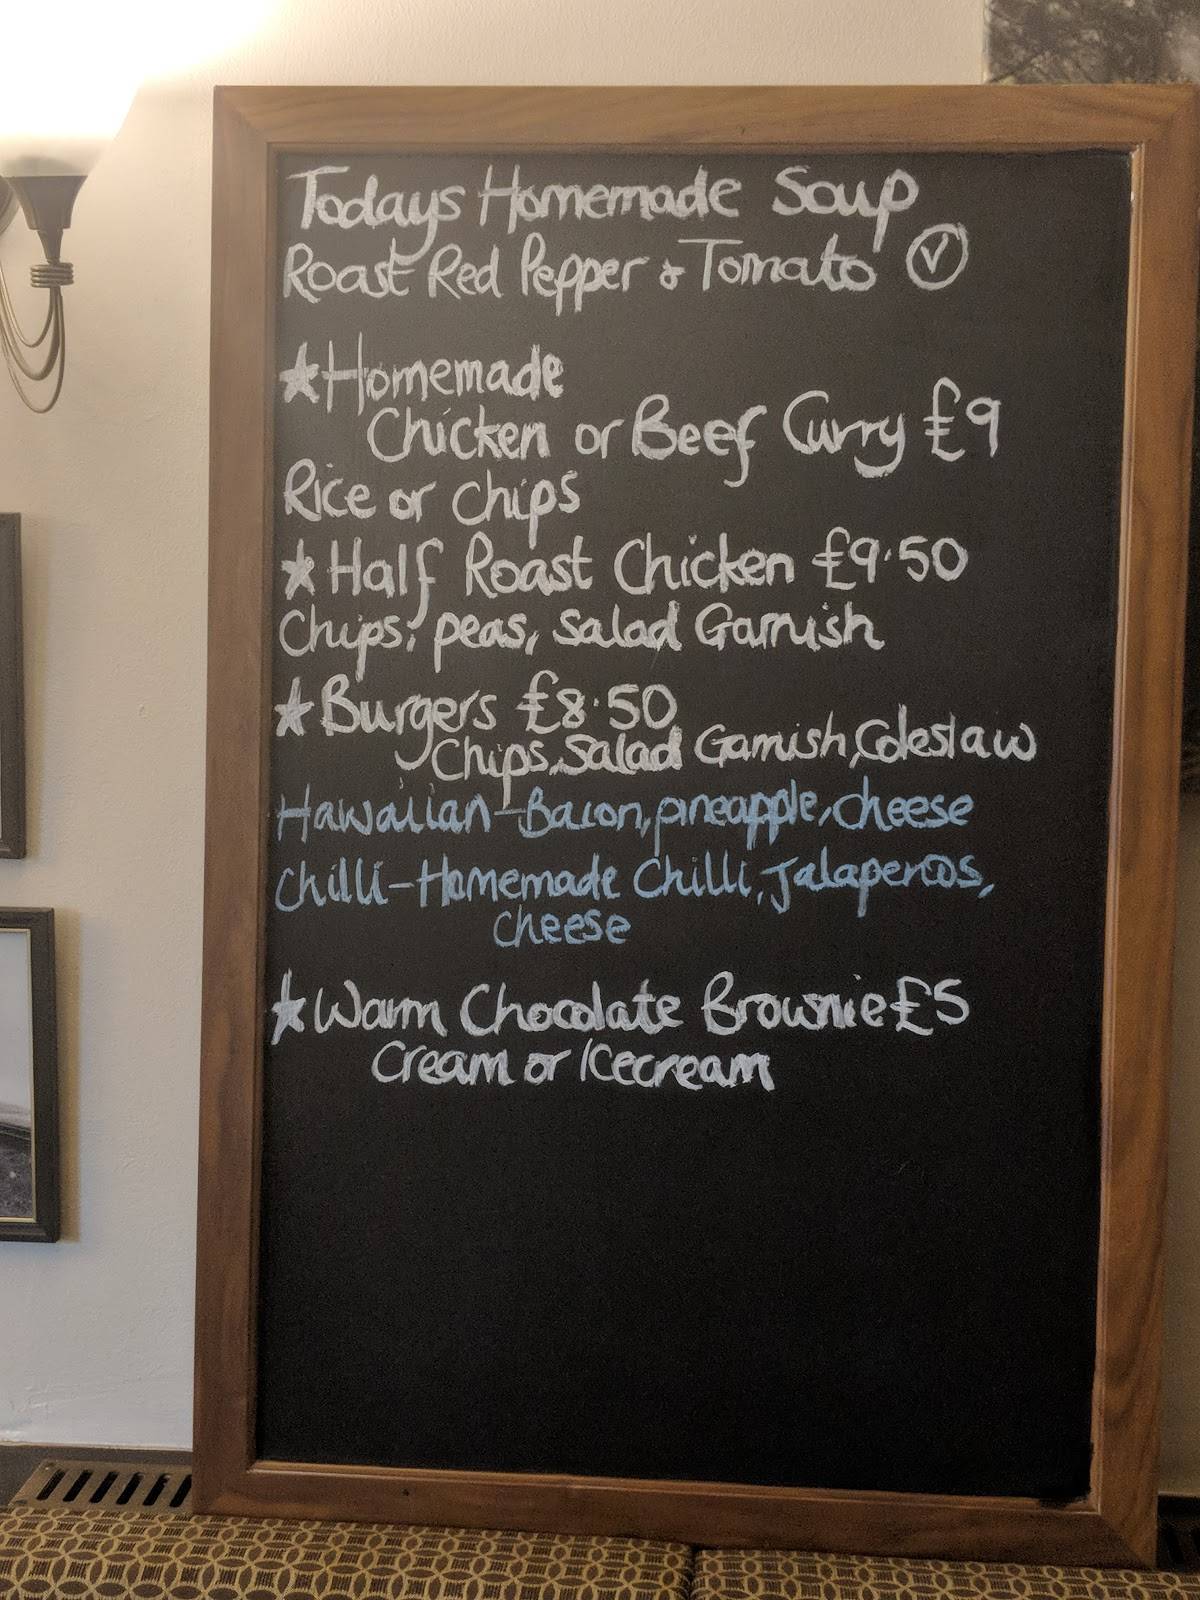 Todays Homemade Soup
Roast Red Pepper & Tomato Ⓥ
★Homemade
Chicken or Beef Curry £9
Rice or chips
★Half Roast Chicken £9.50
Chips, peas, salad Garnish
★Burgers £8.50
Chips, Salad Garnish, Coleslaw
Hawaiian-Bacon, pineapple, cheese
Chilli-Homemade Chilli, Jalapenos,
cheese
★Warm Chocolate Brownie £5
Cream or Icecream